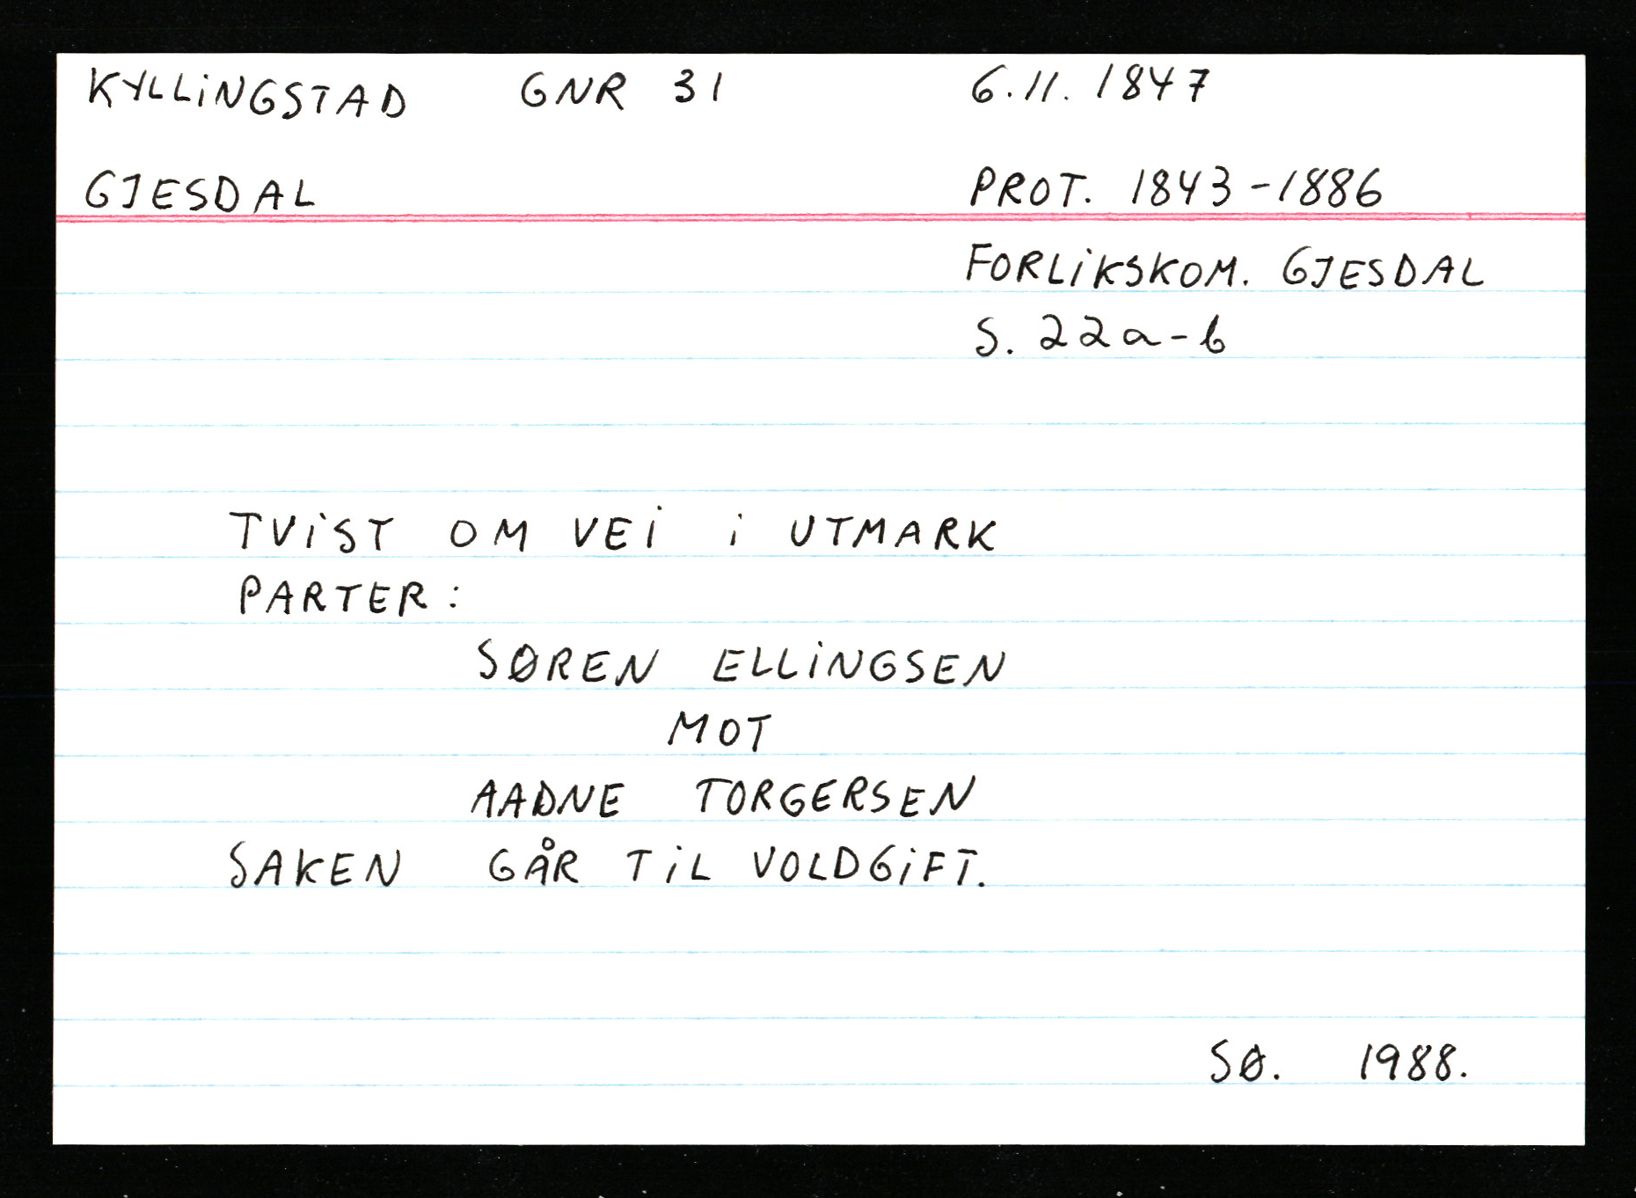 KYLLiNGSTAD GNR 31 6.11.1847
GJESDAL PROT. 1843-1886
FORLiKSKOM. GJESDAL
S. 22a-b
TViST OM VEi i UTMARK
PARTER:
SØREN ELLiNGSEN
MOT
AADNE TORGERSEN
SAKEN GÅR TiL VOLDGiFT.
SØ. 1988.